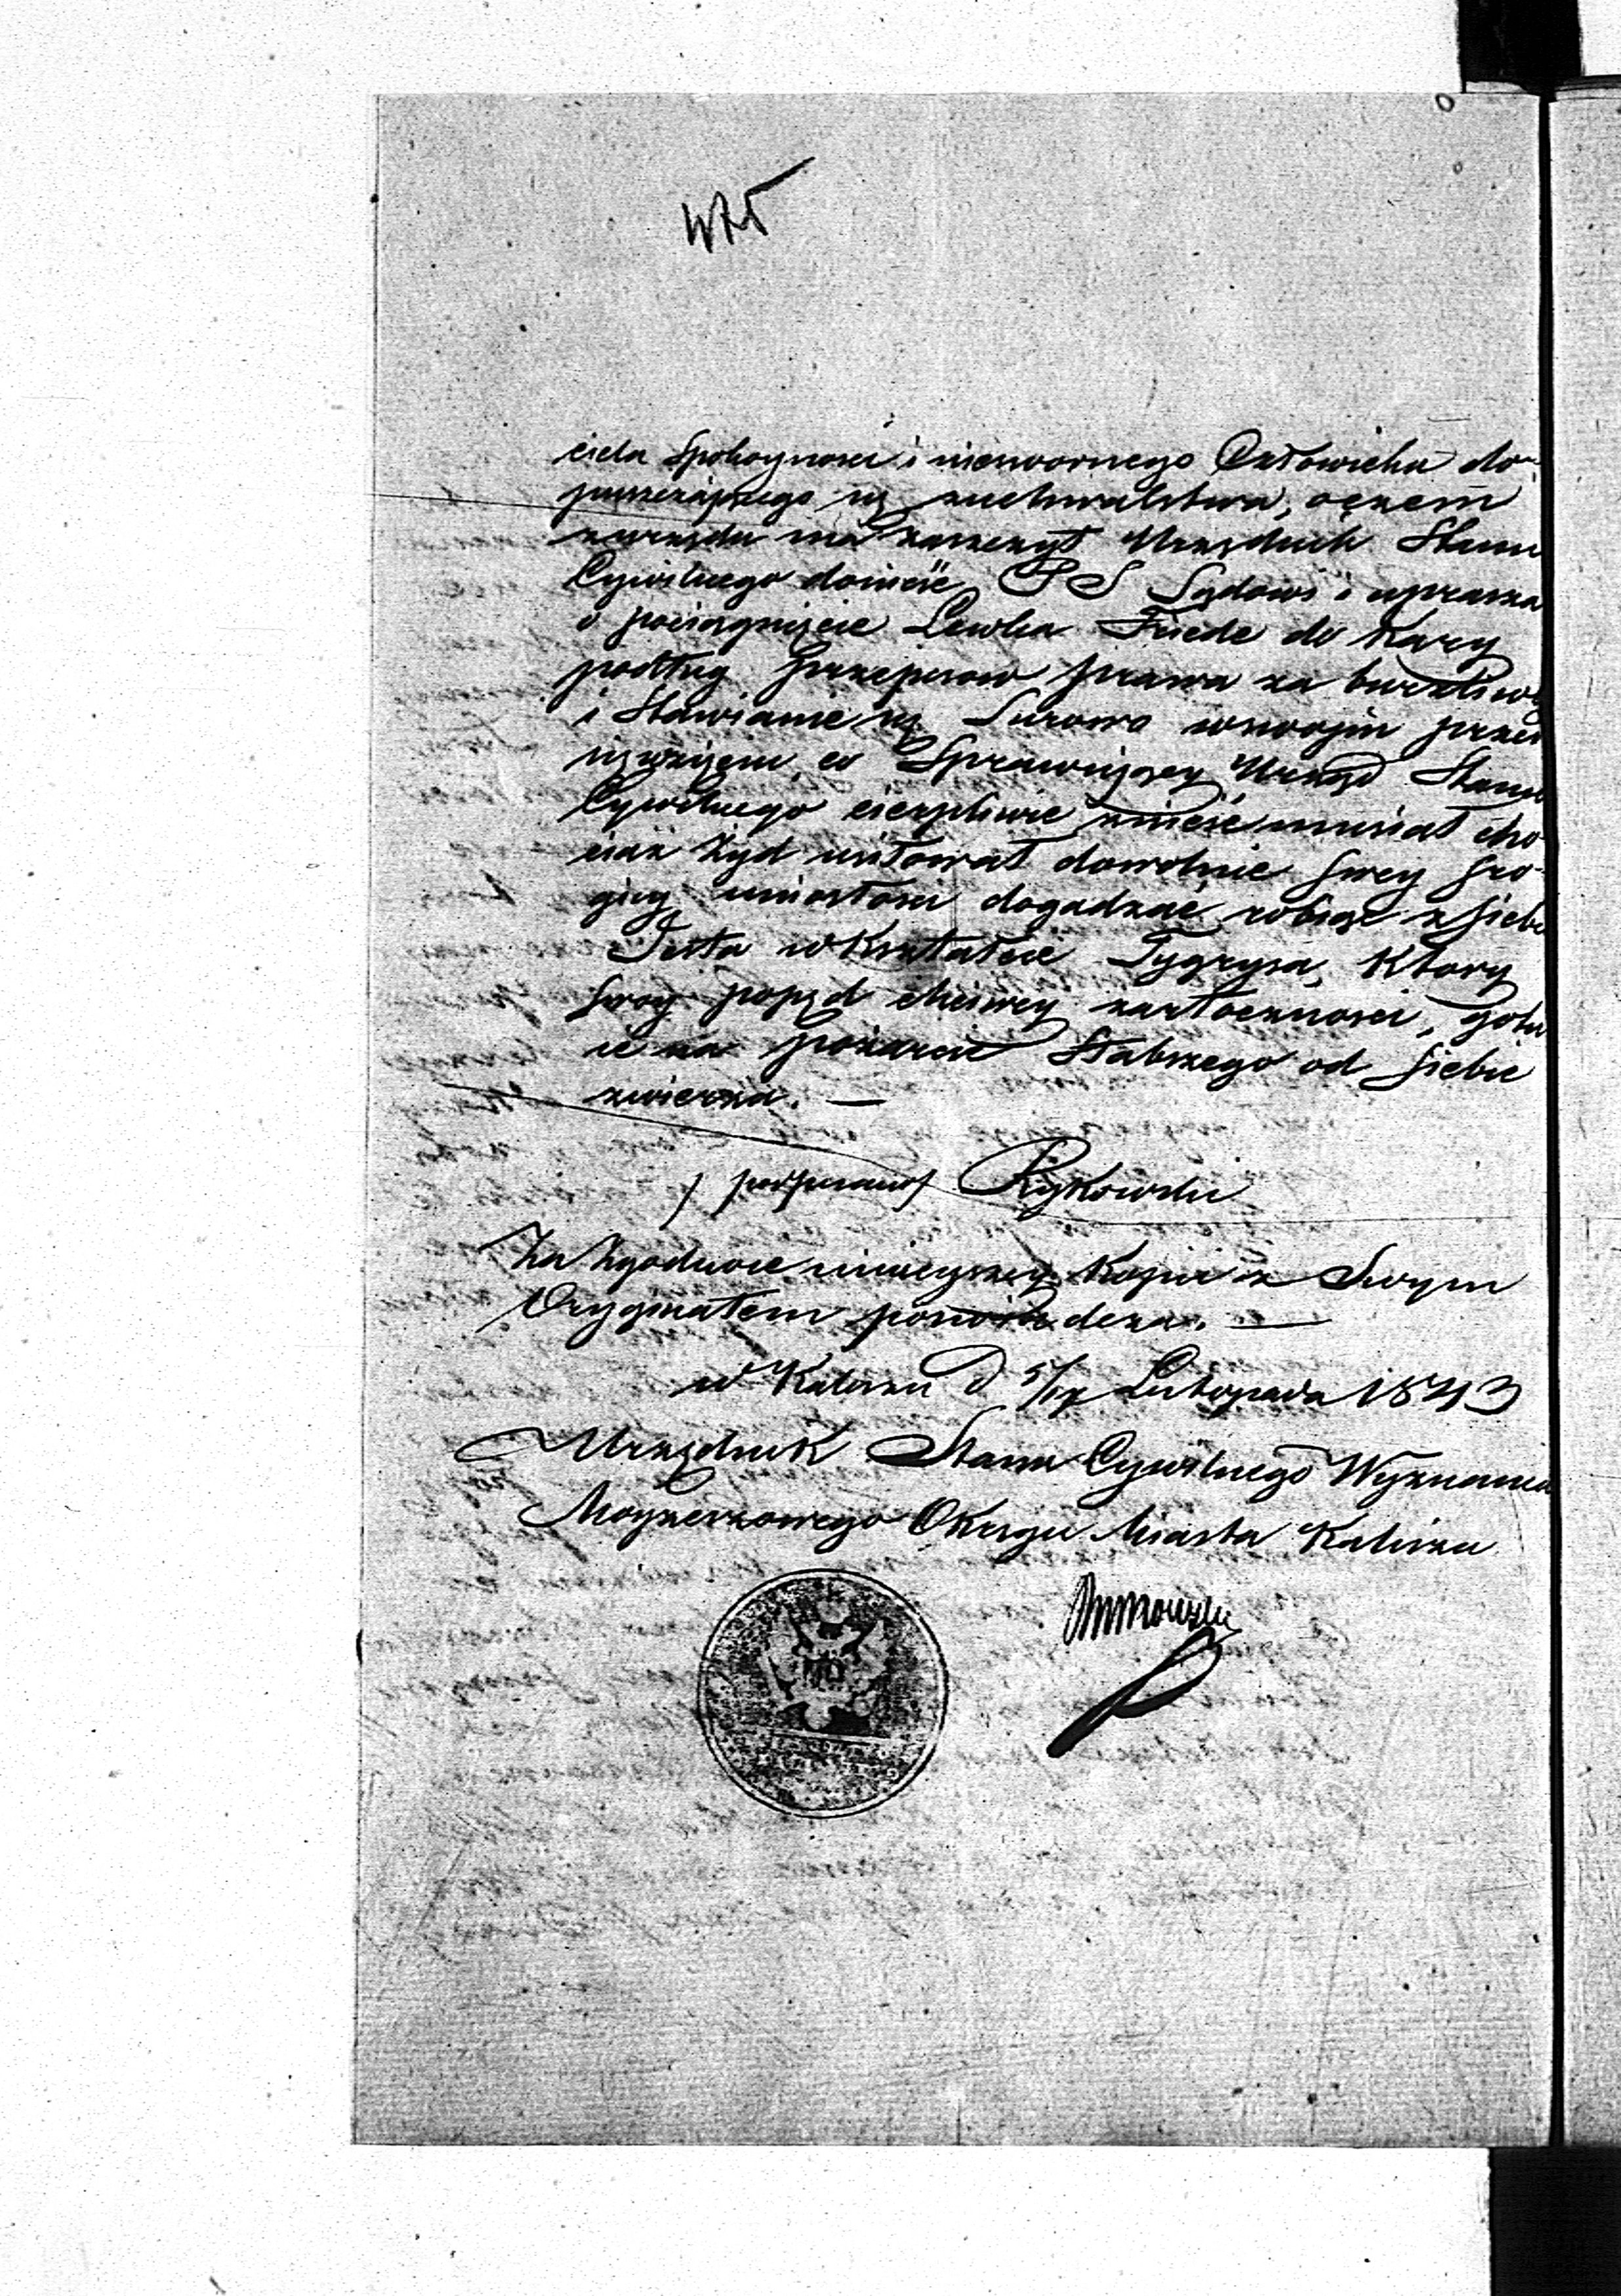 ciela Spokoynosci i niesfornego Człowieka do-
puszczaiącego się zuchwalstwa, oczem
zurzędu ma zaszczyt Urzędnik Stanu
Cywilnego donieść PS Sądowi i uprasza
o pociągnięcie Lewka Friede do Kary
podług Przepisow prawa za burzliwe
i Stawianie się Surowo wswojm przed
co Sprawuiący Urząd Stanu
Cywilnego cierpliwie znieść musiał cho-
ciaż Żyd usiłował dowolnie swey sro-
giey dogadzać robiąc z siebie
w Kształcie Tygrysa, Ktory
swoy popęd chciwey żarłocznosci, gotu
ie na pożarcie Słabszego od siebie
zwierza. —
/ podpisano / Rykowski
Za Zgodnosc ninieyszey Kopii z Swym
Oryginałem poswiadcza. —
w Kaliszu d 5/17 Listopada 1843
Urzędnik Stanu Cywilnego Wyznania
Moyżeszowego Okręgu Miasta Kalisza